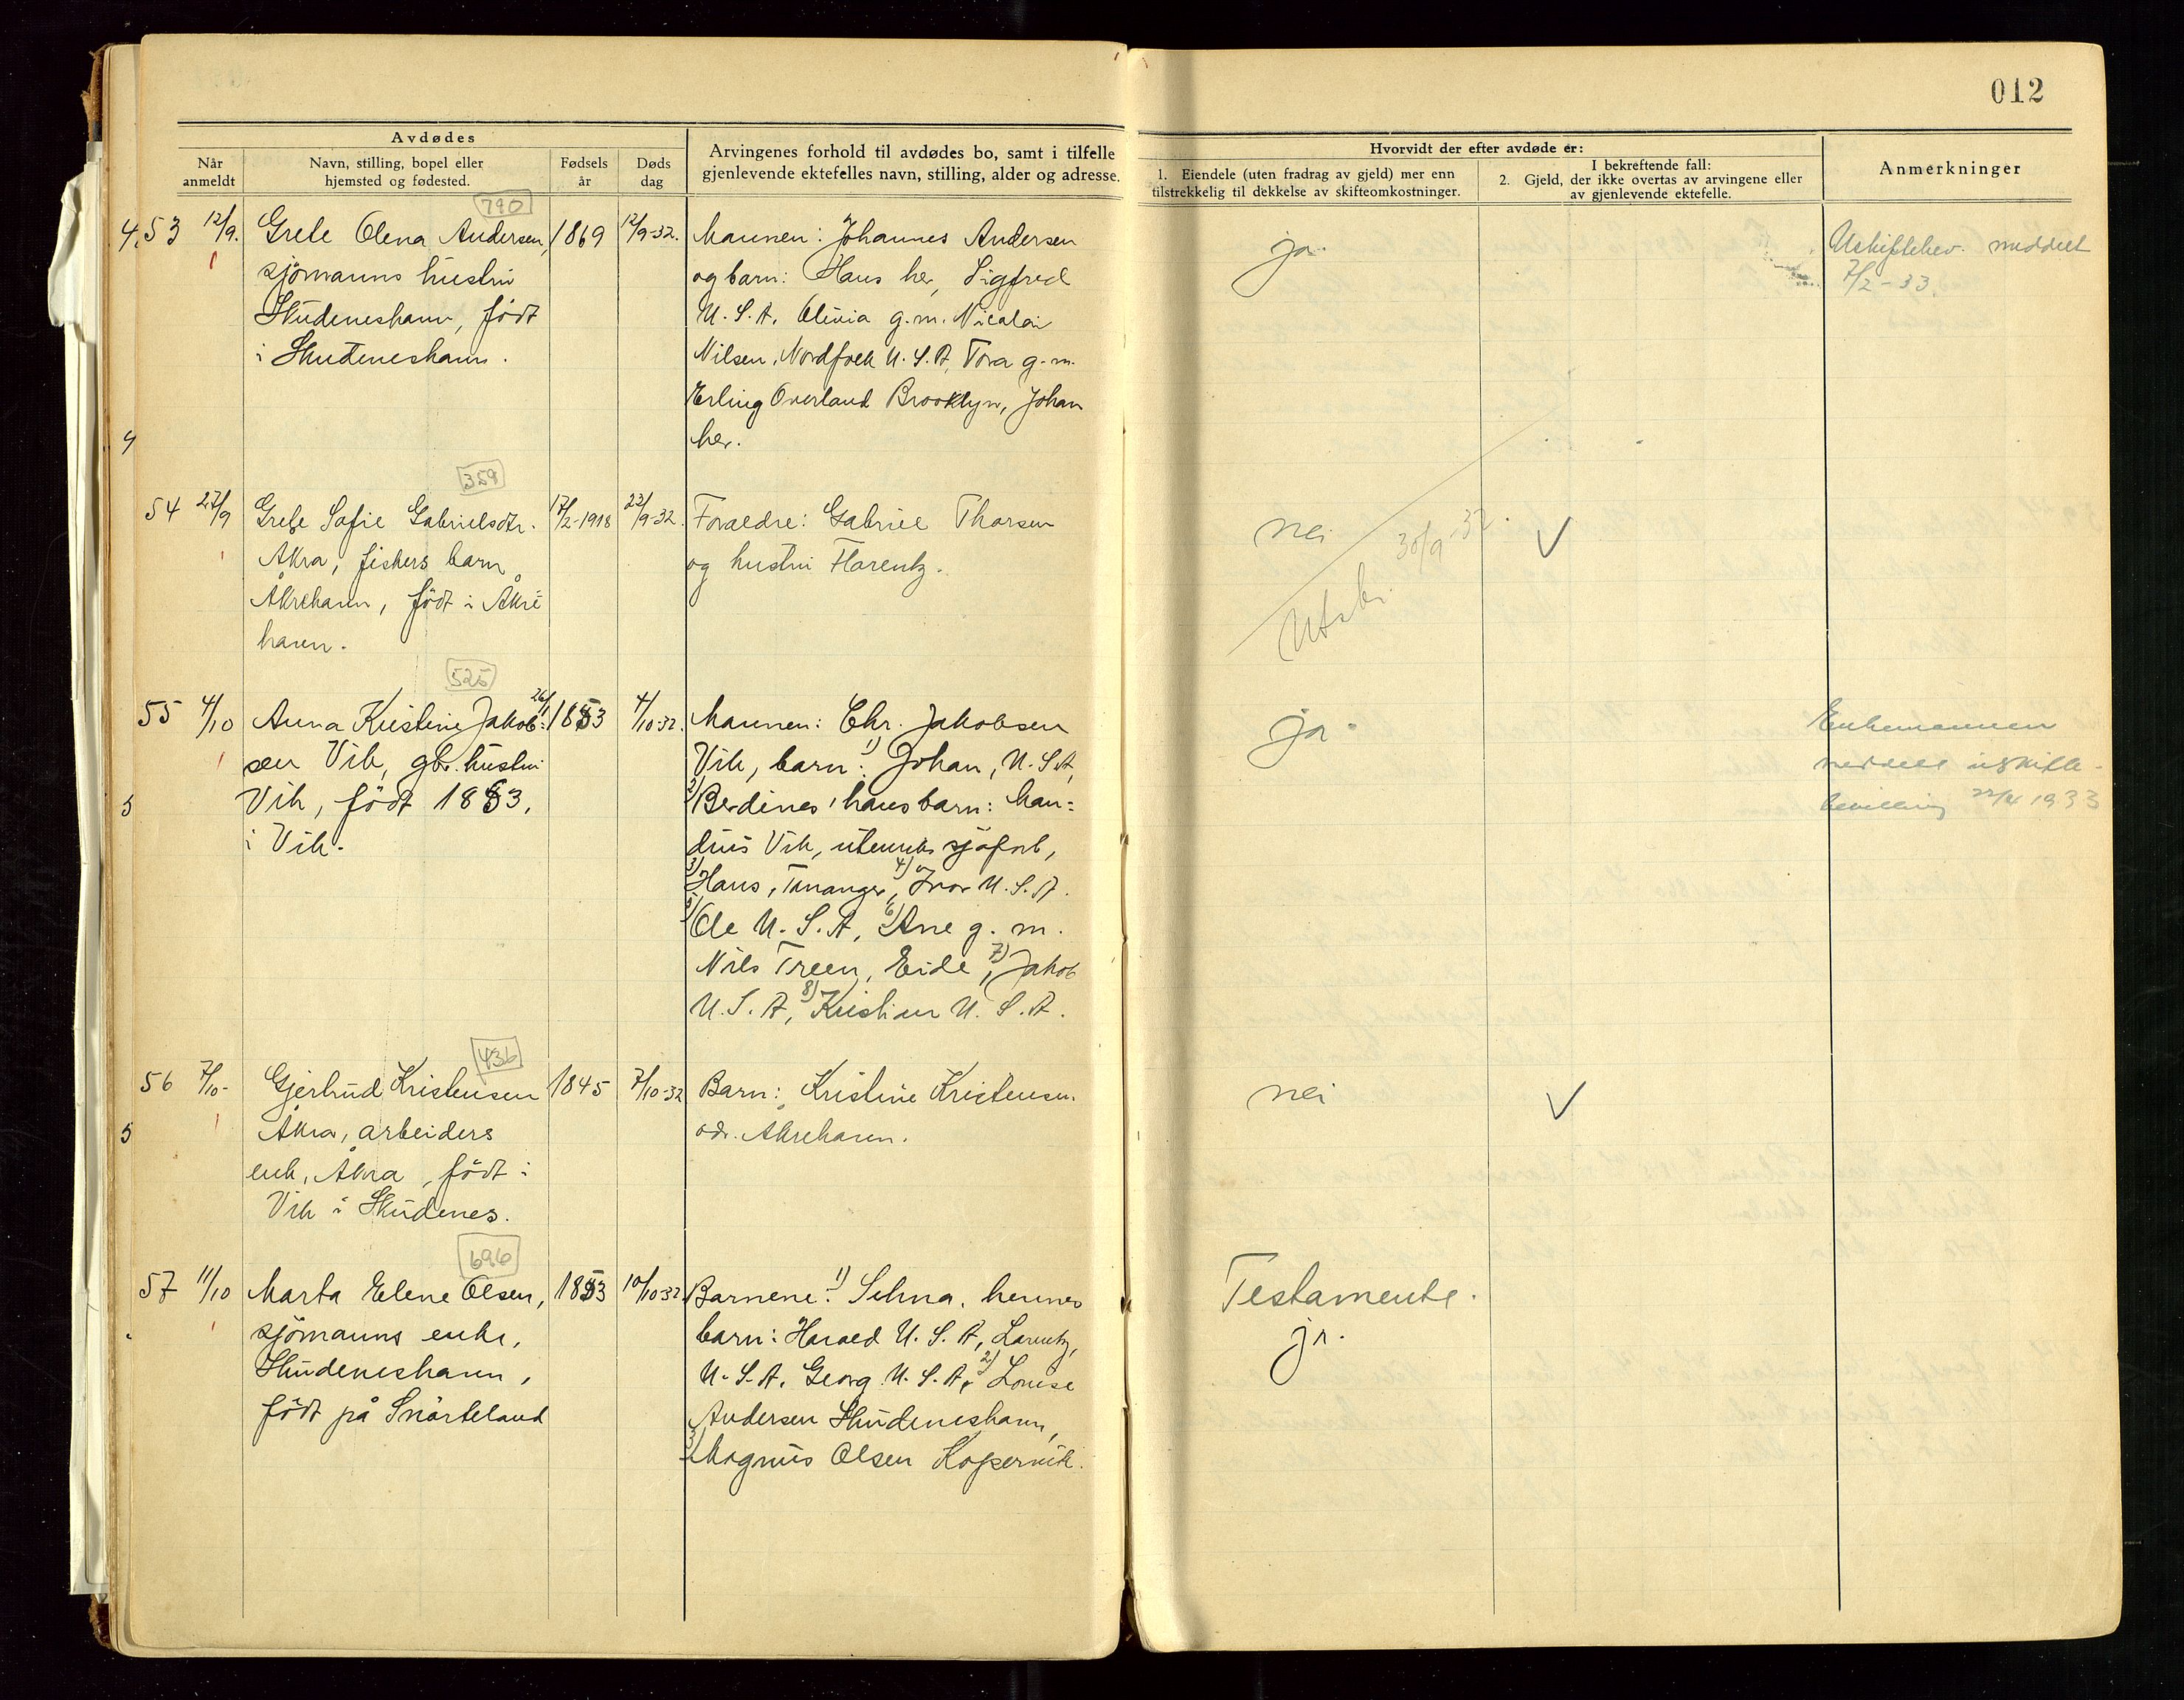 012
Avdødes
Når anmeldt
Navn, stilling, bopel eller hjemsted og fødested.
Fødsels år
Døds dag
Arvingenes forhold til avdødes bo, samt i tilfelle gjenlevende ektefelles navn, stilling, alder og adresse.
Hvorvidt der efter avdøde er:
1. Eiendele (uten fradrag av gjeld) mer enn tilstrekkelig til dekkelse av skifteomkostninger.
I bekreftende fall:
2. Gjeld, der ikke overtas av arvingene eller av gjenlevende ektefelle.
Anmerkninger
790
4, 53 12/9. Grete Olena Andersen, 1869 12/9-32. Mannen: Johannes Andersen ja. Uskiftebev. meddelt
sjömanns hustru og barn: Hans her, Sigfred 7/2-33.
Skudeneshavn, födt U.S.A, Olivia g.m. Nicolai
i Skudeneshavn. Nilsen, Nordfolk U.S.A, Tora g.m.
Erling Overland Brooklyn, Johan
4 her.
359
54 27/9 Grete Sofie Gabrielsdtr. 17/2-1918 23/9-32. Foraeldre: Gabriel Thorsen nei
Åkra, fiskers barn og hustru Florentz.
Åkrehavn, födt i Åkre
havn.
Utskr. 30/9-32.
525
55 4/10 Anna Kristine Jakob= 26/1 1853 4/10-32. Mannen: Chr. Jakobsen ja. Enkemannen
sen Vik, gbr. hustru Vik, barn: 1) Johan, U.S.A, meddelt uskifte-
5 Vik, födt 1853, 2) Berdines, hans barn: bevilling 1933
i Vik. Vik, utenriks sjöfart,
3) Hans, Tananger, 4) Ivar U.S.A.
5) Ole U.S.A, 6) Ane g.m.
Nils Treen, Eide, 7) Jakob
U.S.A, 8) Kristian U.S.A.
436
56 7/10- Gjertrud Kristensen 1845 7/10-32 Barn: Kristine Kristensen nei
5 Åkra, arbeiders adr. Åkrehavn.
enk, Åkra, födt i
Vik i Skudenes.
696
57 11/10 Marta Elene Olsen, 1853 10/10-32 Barnene: 1) Selma, hennes Testamente.
sjömanns enke, barn: Harald U.S.A, Lorentz, ja.
Skudeneshavn, U.S.A, Georg U.S.A, 2) Louise
födt på Snörteland Andersen Skudeneshavn,
3) Magnus Olsen Kopervik.